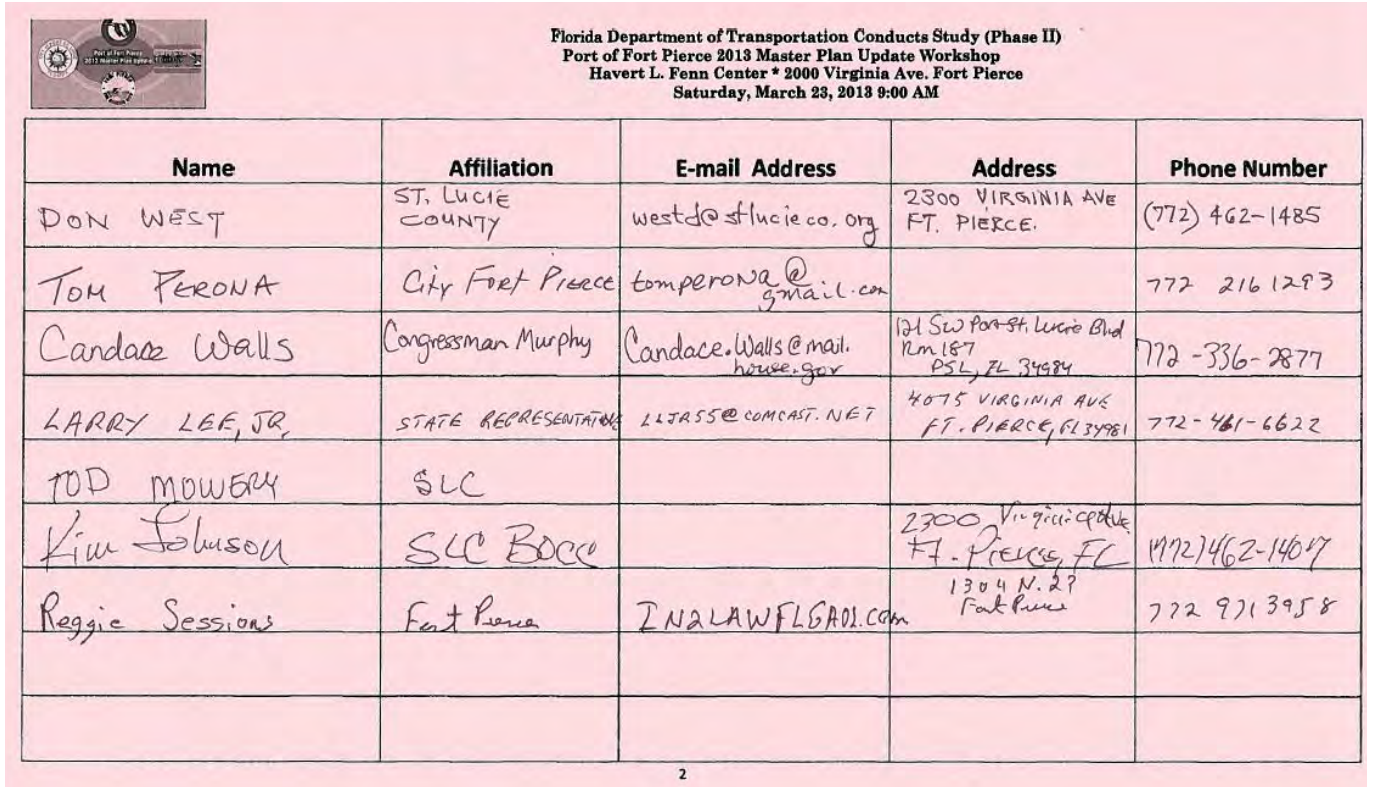 Port of Fort Pierce
2013 Master Plan Update
Florida Department of Transportation Conducts Study (Phase II)
Port of Fort Pierce 2013 Master Plan Update Workshop
Havert L. Fenn Center * 2000 Virginia Ave. Fort Pierce
Saturday, March 23, 2013 9:00 AM
Name Affiliation E-mail Address Address Phone Number
DON WEST ST. LUCIE COUNTY westd@stlucieco.org 2300 VIRGINIA AVE FT. PIERCE. (772) 462-1485
TOM PERONA City Fort Pierce tomperona@gmail.com 772 216 1293
Candace Walls Congressman Murphy Candace.Walls@mail.house.gov 121 SW Port St. Lucie Blvd Rm 187 PSL, FL 34984 772-336-2877
LARRY LEE, JR, STATE REPRESENTATIVE LLJR55@COMCAST.NET 4075 VIRGINIA AVE FT. PIERCE, FL 34981 772-461-6622
TOD MOWERY SLC
Kim Johnson SLC BOCC 2300 Virginia Ave Ft. Pierce, FL (772)462-1407
Reggie Sessions Fort Pierce 1304 N. 27 Fort Pierce 772 971 3958
2